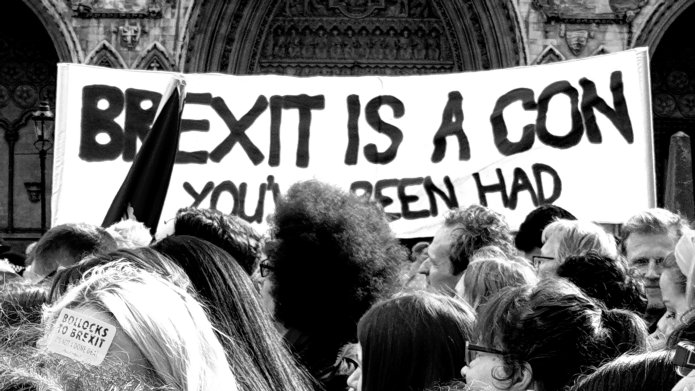 BREXIT IS A CON
YOU'V BEEN HAD
BOLLOCKS
TO BREXIT